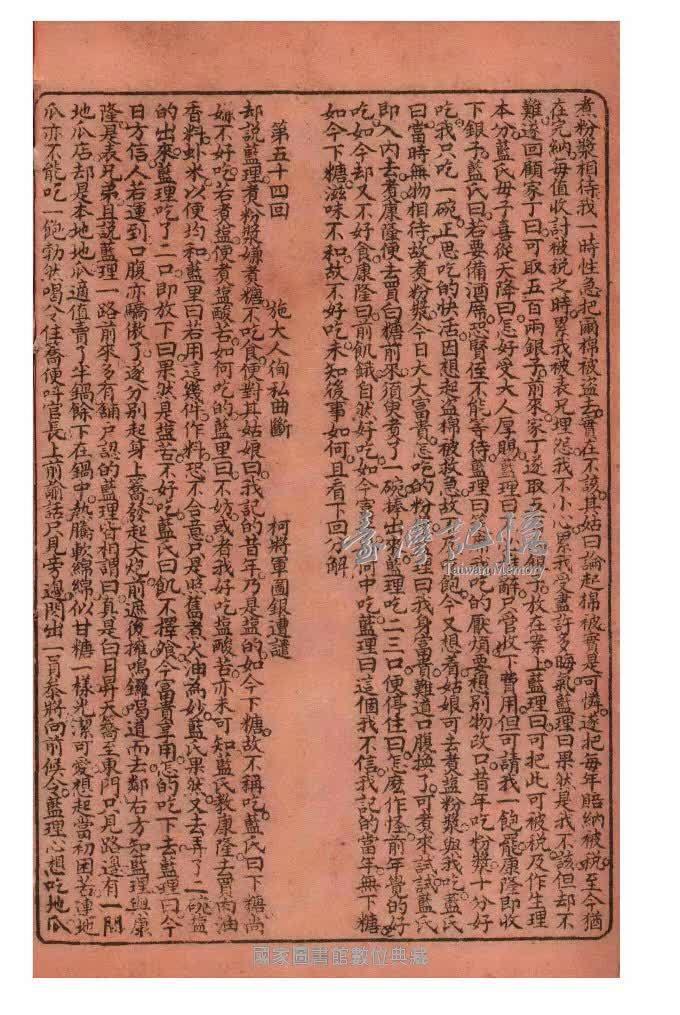 煮粉漿相待我一時性急把爾棉被盜去實在不該其姑曰論起棉被實是可憐遂把每年賠納被稅至今猶
在完納每值收討被稅之時累我被表兄埋怨我不小心累我受盡許多晦氣藍理曰果然是我不該但却不
難遂回顧家丁曰可取五百兩銀子前來家丁遂取五放在案上藍理曰可把此可被稅及作生理
本分藍氏母子喜從天降曰怎好受大人厚賜藍理曰辭只管收下費用但可請我一飽罷康隆即收
下銀子藍氏曰若要備酒席恐賢侄不能等待藍理曰吃的厭煩要想別物改口昔年吃粉漿十分好
吃我只吃一碗正思吃的快活因想起盜棉被救急故不及飽今又想着姑娘可去煮盜粉漿與我吃藍氏
曰當時無物相待故煮粉漿今日大大富貴怎吃的粉理曰我身富貴難道口腹換了可煮來試試藍氏
即入內去煮康隆便去買白糖前來須臾煮了一碗捧出來藍理吃二三口便停住曰怎麼作怪前年覺的好
吃如今却又不好食康隆曰前飢餓自然好吃如今富何中吃藍理曰這個我不信我記的當年無下糖
如今下糖滋味不和故不好吃未知後事如何且看下回分解
第五十四回 施大人徇私曲斷 柯將軍圖銀遭譴
却說藍理煮粉漿嫌煮糖不吃食便對其姑娘曰我記的昔年乃是塩的如今下糖故不稱吃藍氏曰下糖尚
嫌不好吃若煮塩便煮塩酸苦如何吃的藍里曰不妨或者我好吃塩酸苦亦未可知藍氏教康隆去買肉油
香料蚵米以便均和藍里曰若用這幾件作料恐不合意只是照舊煮火油為妙藍氏果然又去弄了一碗塩
的出來藍理吃了二口即放下曰果然是塩苦不好吃藍氏曰飢不擇飧今富貴享用怎的吃下去藍理曰今
日方信人若運到口腹亦驕傲了遂分別起身上蕎發起大炮前遮後擁鳴鑼喝道而去鄰右方知藍理與康
隆是表兄弟且說藍理一路前來多有舖戶認的藍理皆相謂曰真是白日昇天蕎至東門只見路邊有一間
地瓜店却是本地地瓜適值賣了半鍋餘下在鍋中熱騰軟綿綿似甘糖一樣光潔可愛想起當初困苦連地
瓜亦不能吃一飽勃然喝令住蕎便呼官長上前諭話只見旁邊閃出一員泰將向前候令藍理心想吃地瓜
臺灣記憶
Taiwan Memory
國家圖書館數位典藏